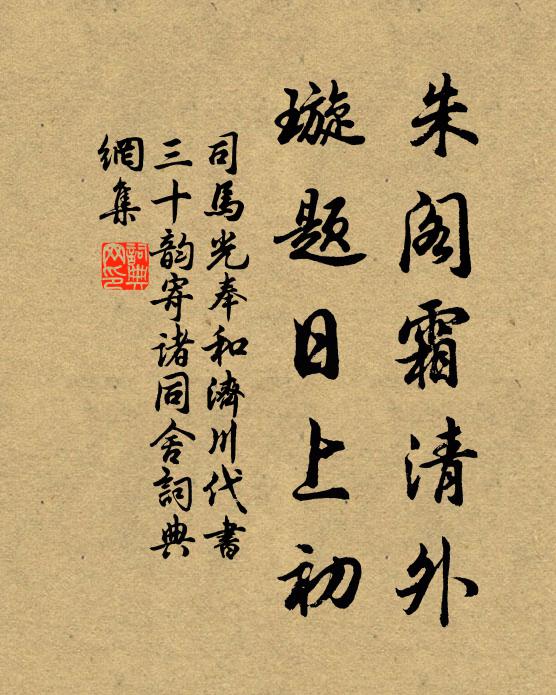 朱阁霜清外
璇题日上初
司馬光奉和濟川代書
三十韵寄诸同舍詞典
網集
詞典
网印